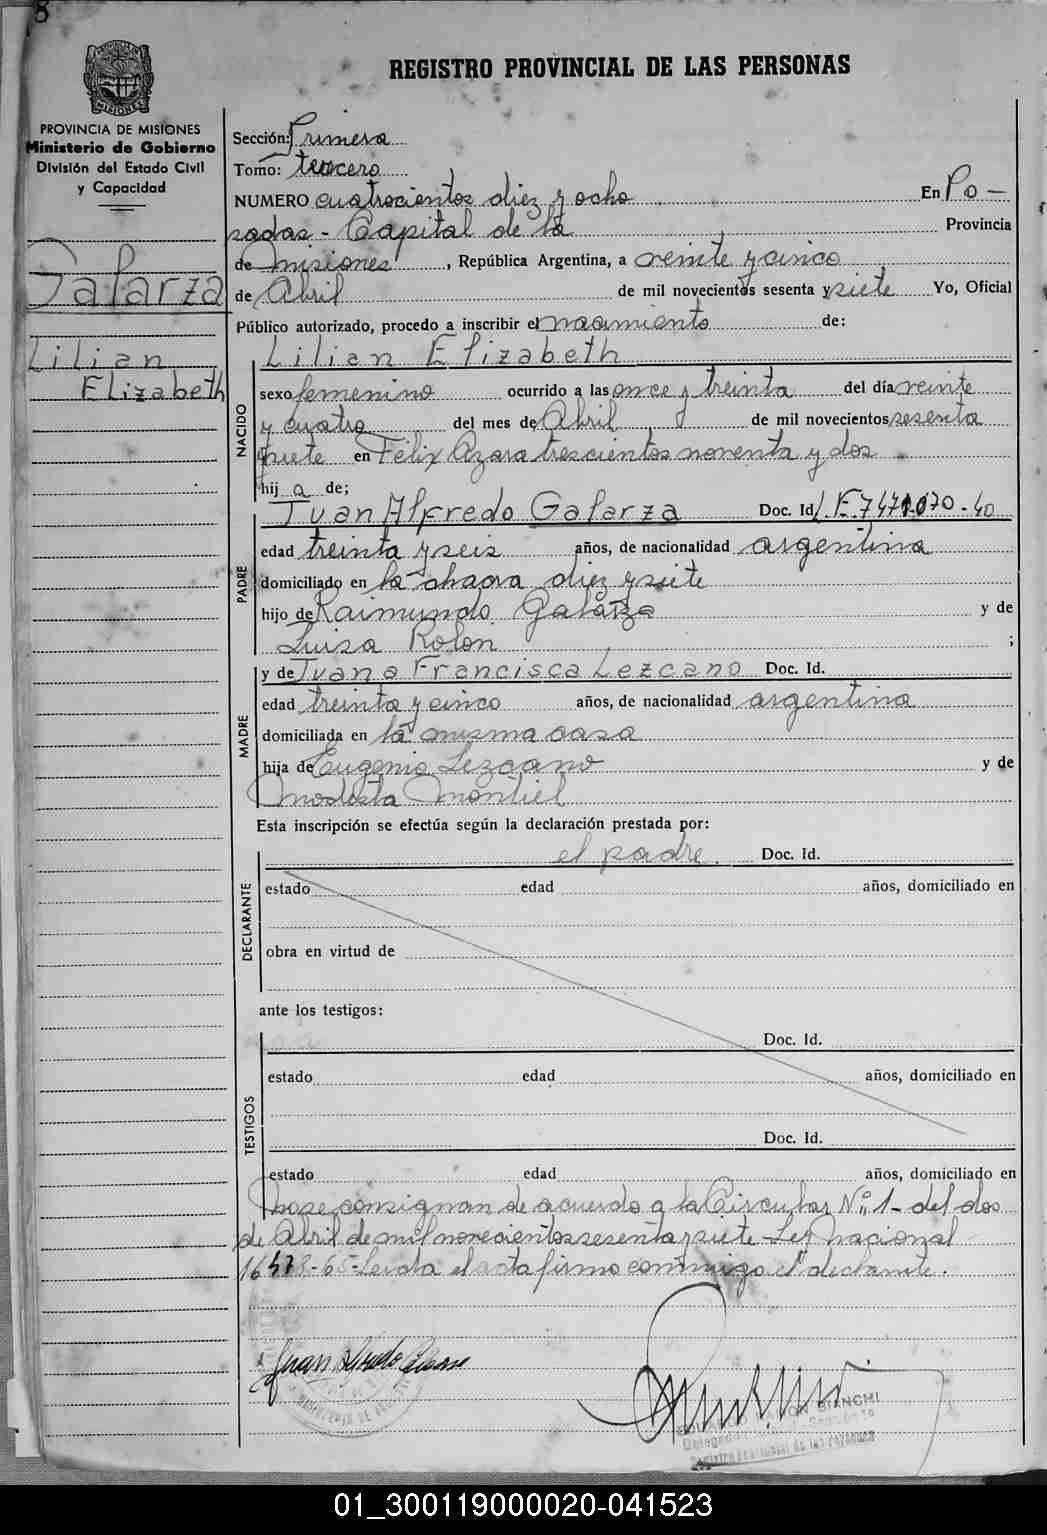 8
REGISTRO PROVINCIAL DE LAS PERSONAS
PROVINCIA DE MISIONES
Ministerio de Gobierno
División del Estado Civil
y Capacidad
Galarza
Lilian
Elizabeth
Sección: Primera
Tomo: tercero
NUMERO cuatrocientos diez y ocho En Po-
sadas - Capital de la Provincia
de Misiones, República Argentina, a veinte y cinco
de Abril de mil novecientos sesenta y siete Yo, Oficial
Público autorizado, procedo a inscribir el nacimiento de:
NACIDO
Lilian Elizabeth
sexo femenino ocurrido a las once y treinta del día veinte
y cuatro del mes de Abril de mil novecientos sesenta
siete en Félix Azara trescientos noventa y dos.
hij a de;
PADRE
Juan Alfredo Galarza Doc. Id. L.E.
edad treinta y seis años, de nacionalidad argentina
domiciliado en la chacra diez y siete
hijo de Raimundo Galarza y de
Luisa Rolon ;
MADRE
y de Juana Francisca Lezcano Doc. Id.
edad treinta y cinco años, de nacionalidad argentina
domiciliada en la misma casa
hija de Eugenio Lezcano y de
Modesta Montiel
Esta inscripción se efectúa según la declaración prestada por:
DECLARANTE
el padre. Doc. Id.
estado edad años, domiciliado en
obra en virtud de
ante los testigos:
TESTIGOS
Doc. Id.
estado edad años, domiciliado en
Doc. Id.
estado edad años, domiciliado en
no se consignan de acuerdo a la Circular Nº 1- del dos
de Abril de mil novecientos sesenta y siete Ley Nacional
Leida el acta firma conmigo el
Juan Alfredo
BIANCHI
01_300119000020-041523